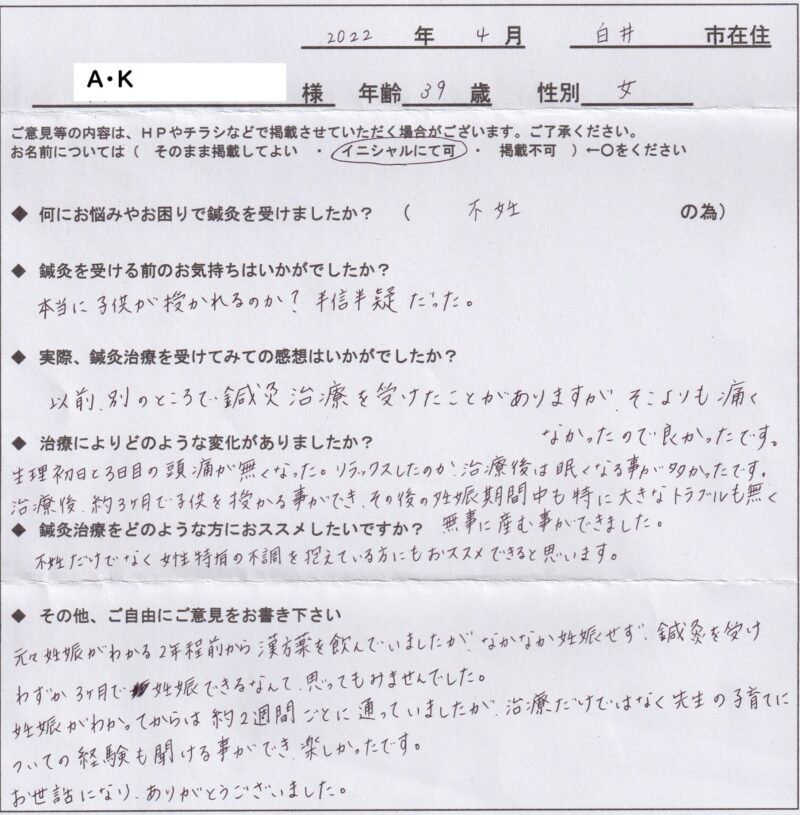 2022 年 4 月 白井 市在住
A・K 様 年齢 39 歳 性別 女
ご意見等の内容は、HPやチラシなどで掲載させていただく場合がございます。ご了承ください。
お名前については（ そのまま掲載してよい ・ イニシャルにて可 ・ 掲載不可 ）←〇をください
◆ 何にお悩みやお困りで鍼灸を受けましたか？ （ 不妊 の為）
◆ 鍼灸を受ける前のお気持ちはいかがでしたか？
本当に子供が授かれるのか？半信半疑だった。
◆ 実際、鍼灸治療を受けてみての感想はいかがでしたか？
以前、別のところで鍼灸治療を受けたことがありますが、そこよりも痛く
なかったので良かったです。
◆ 治療によりどのような変化がありましたか？
生理初日と3日目の頭痛が無くなった。リラックスしたのか、治療後は眠くなる事が多かったです。
治療後、約3ヶ月で子供を授かる事ができ、その後の妊娠期間中も特に大きなトラブルも無く
無事に産む事ができました。
◆ 鍼灸治療をどのような方におススメしたいですか？
不妊だけでなく女性特有の不調を抱えている方にもおススメできると思います。
◆ その他、ご自由にご意見をお書き下さい
元々妊娠がわかる2年程前から漢方薬を飲んでいましたが、なかなか妊娠せず、鍼灸を受け
わずか3ヶ月で妊娠できるなんて、思ってもみませんでした。
妊娠がわかってからは約2週間ごとに通っていましたが、治療だけではなく先生の子育てに
ついての経験も聞ける事ができ、楽しかったです。
お世話になり、ありがとうございました。